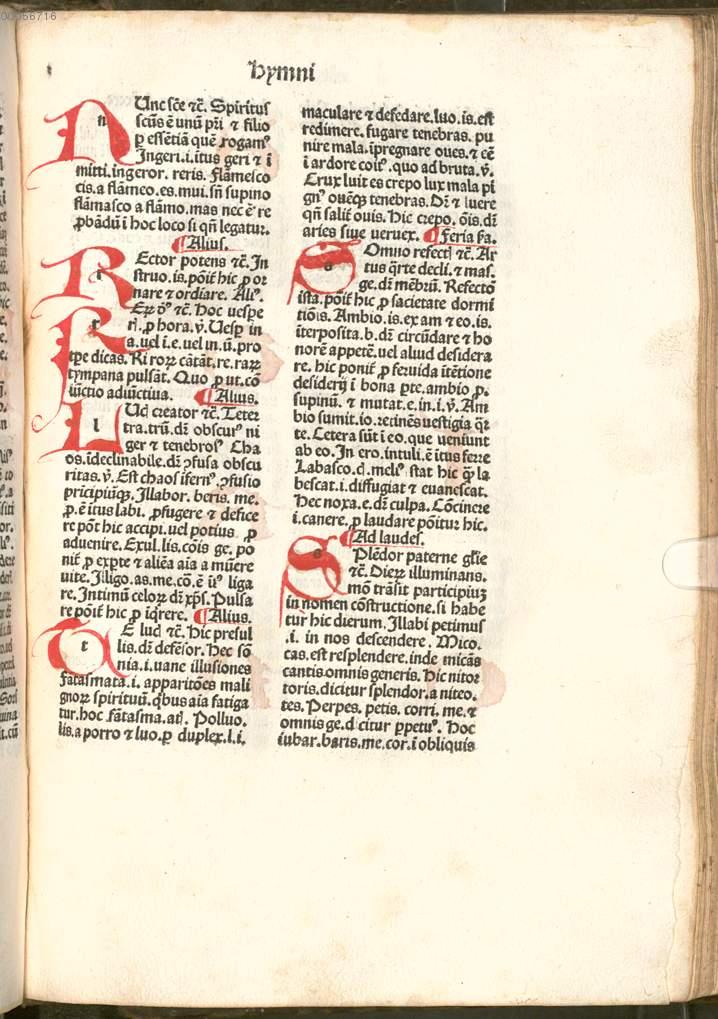 00056716
Hymni
NUnc sc̄e ⁊c̄. Spiritus
scūs ē unū pr̄i ⁊ filio
ꝑ essētiā quē rogamꝰ
Jngeri.i.itus geri ⁊ i
mitti.ingeror. reris. flamesco
cis.a flāmeo.es.mui.sn̄ supino
flāmasco a flāmo.mas nec ē re
ꝓbādū i hoc loco si qn̄ legatur.
¶ Alius.
REctor potens ⁊c̄. Jn
struo.is.pōit̄ hic ꝓ or
nare ⁊ ordiare. Aliꝰ.
REꝝ ꝰ ⁊c̄. hoc uespe
ri.ꝓ hora.v̄. Uesꝑ in
a.uel i.e.uel in.u.pro
tꝑe dicas. Ri rorꝝ cātāt.re.rarꝝ
tympana pulsāt. Quo ꝓ ut.cō
iūctio adiūctiua. ¶ Alius.
LUcꝭ creator ⁊c̄. Teter
tra.trū.dr̄ obscurꝰ ni
ger ⁊ tenebrosꝰ Cha
os.īdeclinabile.dr̄ ꝯfusa obscu
ritas.v̄. Est chaos ifernꝰ ꝯfusio
prīcipiūqꝫ. Jllabor. beris. me.
ꝓ.ē ītus labi. ꝓfugere ⁊ defice
re pōt hic accipi.uel potius ꝓ
aduenire. Exul.lis.cōis ge. po
nit̄ ꝓ expꝑte ⁊ aliēa aīa a mūere
uite. Jligo.as.me.cō.ē iiꝰ liga
re. Jntimū celoꝝ dr̄ xp̄s. Pulsa
re pōit̄ hic ꝓ iq̄rere. ¶ Alius.
TE luc̄ ⁊c̄. hic presul
lis.dr̄ defēsor. hec sō
nia.i.uane illusiones
fātasmata.i. apparitōes mali
gnoꝝ spirituū.q̄bus aīa fatiga
tur.hoc fātasma.atꝭ. Polluo.
lis.a porro ⁊ luo.ꝓ duplex.l.i.
maculare ⁊ defedare.luo.is.est
redimere. fugare tenebras. pu
nire mala.īpregnare oues.⁊ cē
i ardore coitꝰ.quo ad bruta.v̄.
Crux luit es crepo lux mala pi
gnꝰ ouēqꝫ tenebras. Dr̄ ⁊ luere
qn̄ salit̄ ouis. hic crepo. ōis.dr̄
aries siue veruex. ¶ Feria ẜa.
SOmno refectꝭ ⁊c̄. Ar
tus q̄rte decli.⁊ mas.
ge.dr̄ mēbrū. Refectō
ista.pōit̄ hic ꝓ sacietate dormi
tiōis. Ambio.is.ex am ⁊ eo.is.
īterposita.b.dr̄ circūdare ⁊ ho
norē appetē.uel aliud desidera
re. hic ponit̄ ꝓ feruida ītētione
desiderij i bona ꝑte.ambio ꝓ.
supinū. ⁊ mutat.e.in.i.v̄. Am
bio sumit.io.retinēs uestigia q̄r
te. Cetera sūt i eo.que ueniunt
ab eo. Jn ero.intuli.ē itus ferre
Labasco.cꝭ.melꝰ.stat hic qꝫ la
bescat.i.diffugiat ⁊ euanescat.
hec noxa.e.dr̄ culpa. Cōcinere
i.canere. ꝓ laudare pōitur hic.
¶ Ad laudes.
SPlēdor paterne glīe
⁊c̄. Dierꝝ illuminans.
mō trāsit participiuꝫ
in nomen cōstructione.si habe
tur hic dierum. Jllabi petimus
.i. in nos descendere. Mico.
cas.est resplendere.inde micās
cantis.omnis generis. hic nitor
toris.dicitur splendor.a niteo.
tes. Perpes. petis. corri. me.⁊
omnis ge.dicitur ꝑpetuꝰ. hoc
iubar.baris.me.cor.i obliquis